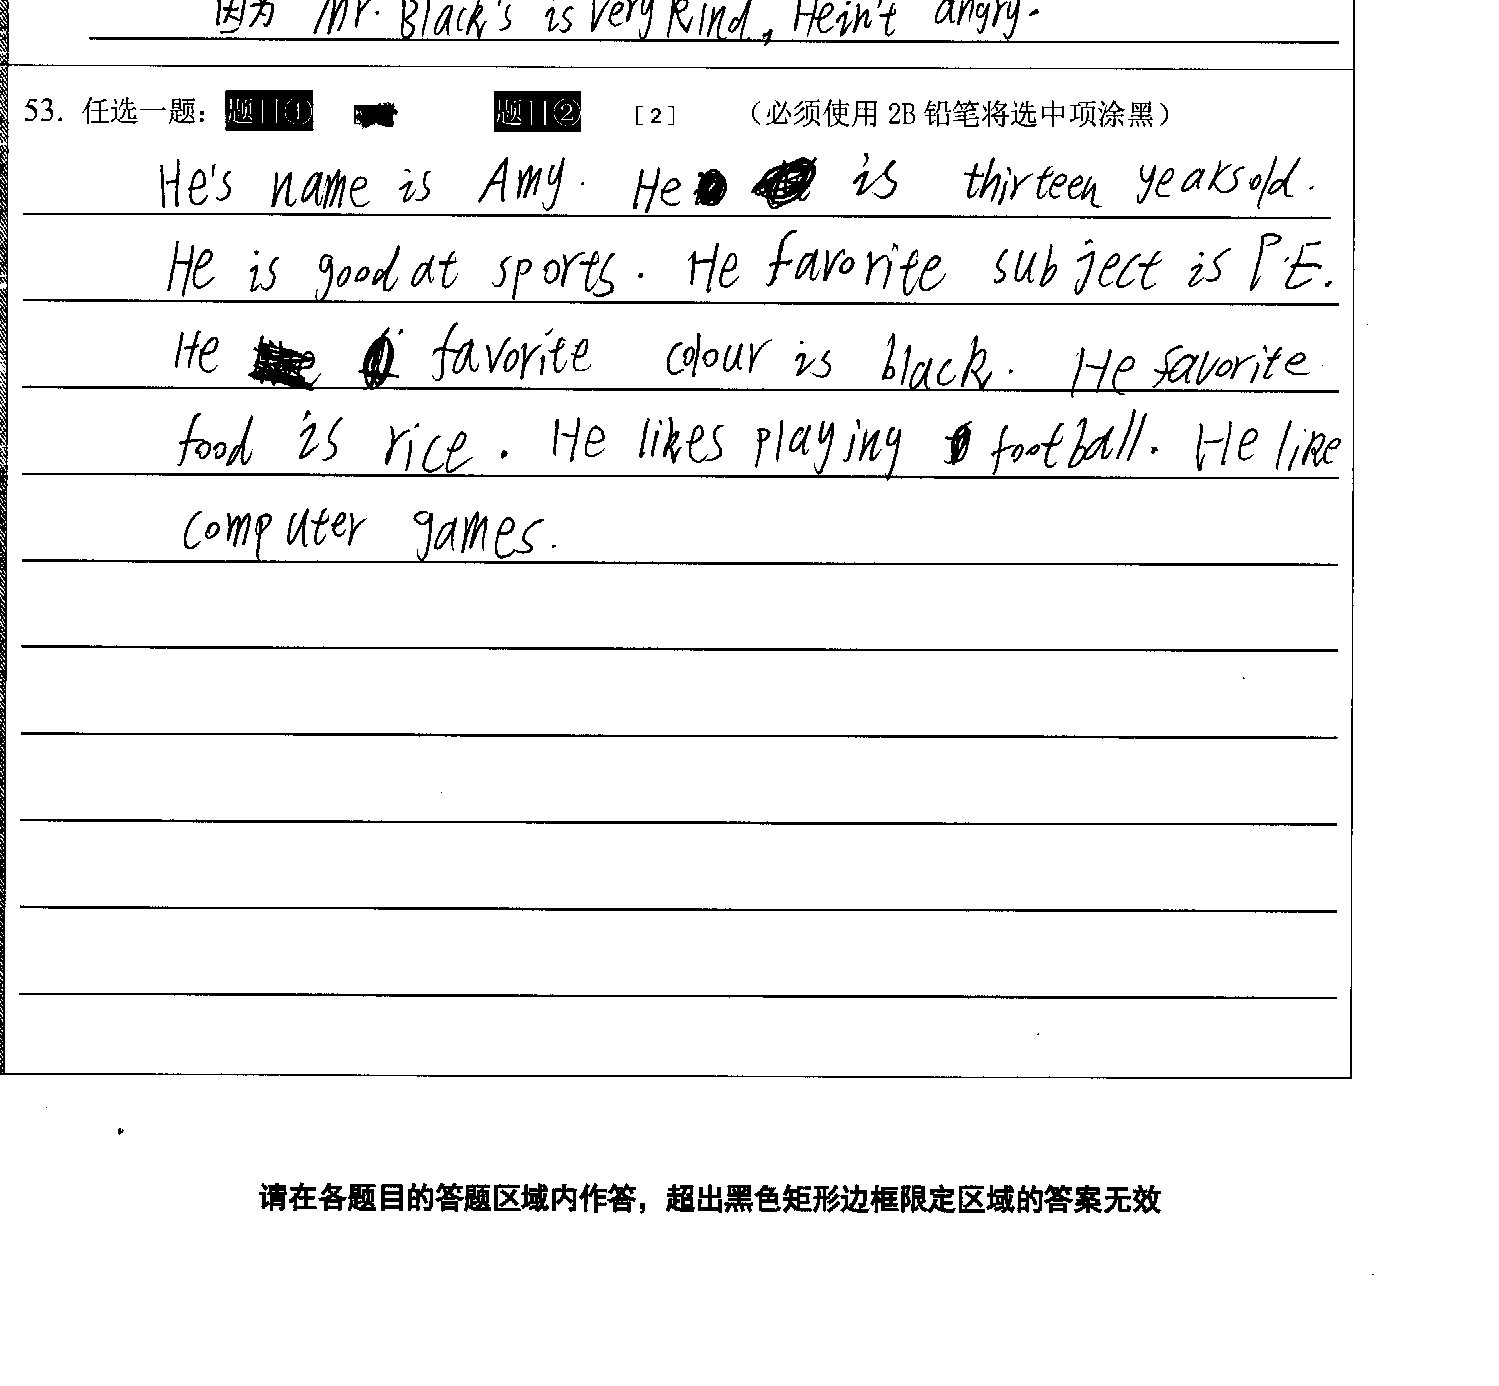 因为 Mr. Black's is very kind, Hein't angry.
53. 任选一题： 题目① 题目② [2] （必须使用 2B 铅笔将选中项涂黑）
He's name is Amy. He is thirteen yeaksold.
He is good at sports. He favorite subject is P.E.
He favorite colour is black. He favorite
food is rice. He likes playing football. He like
computer games.
请在各题目的答题区域内作答，超出黑色矩形边框限定区域的答案无效